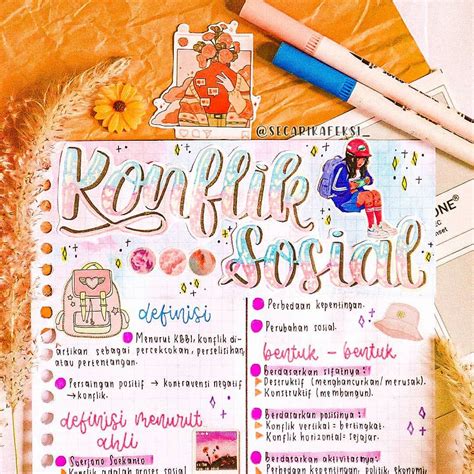 @SECARIKAFEKSI_
Konflik
Sosial
definisi
Menurut KBBI, konflik di-
artikan sebagai percekcokan, perselisihan,
atau pertentangan.
Persaingan positif → kontravensi negatif
→ konflik.
definisi menurut
ahli
Soerjono Soekanto
Konflik adalah proses sosial
Perbedaan kepentingan.
Perubahan sosial.
bentuk - bentuk
Berdasarkan sifatnya:
Destruktif (menghancurkan/merusak).
Konstruktif (membangun).
Berdasarkan posisinya:
Konflik vertikal = bertingkat.
Konflik horizontal = sejajar.
Berdasarkan aktivitasnya: